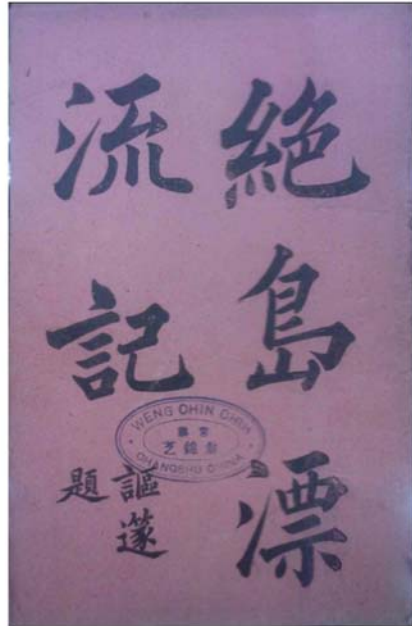 絕島漂
流記
謳篴
題
WENG CHIN CHIH
常熟
翁錦芝
CHANGSHU CHINA